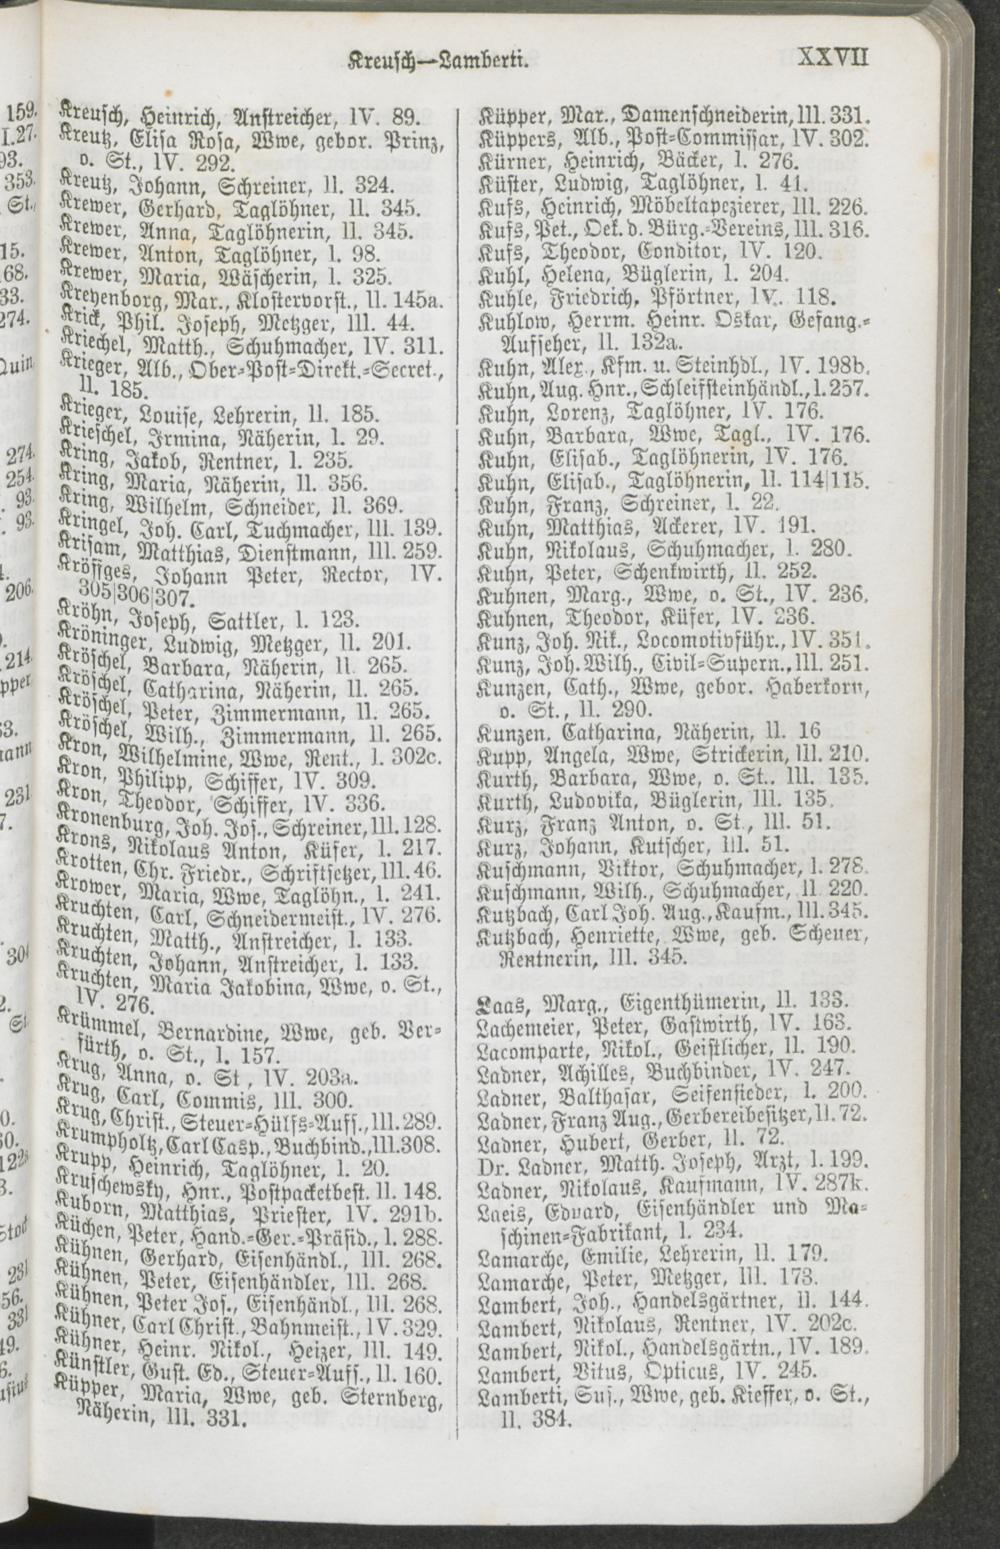 Kreusch—Lamberti.
XXVII
Kreusch, Heinrich, Anstreicher, IV. 89.
Kreutz, Elisa Rosa, Wwe, gebor. Prinz,
o. St., IV. 292.
Kreutz, Johann, Schreiner, II. 324.
Krewer, Gerhard, Taglöhner, II. 345.
Krewer, Anna, Taglöhnerin, II. 345.
Krewer, Anton, Taglöhner, I. 98.
Krewer, Maria, Wäscherin, I. 325.
Kreyenborg, Mar., Klostervorst., II. 145a.
Krick, Phil. Joseph, Metzger, III. 44.
Kriechel, Matth., Schuhmacher, IV. 311.
Krieger, Alb., Ober-Post-Direkt.-Secret.,
II. 185.
Krieger, Louise, Lehrerin, II. 185.
Krieschel, Irmina, Näherin, I. 29.
Kring, Jakob, Rentner, I. 235.
Kring, Maria, Näherin, II. 356.
Kring, Wilhelm, Schneider, II. 369.
Kringel, Joh. Carl, Tuchmacher, III. 139.
Krisam, Matthias, Dienstmann, III. 259.
Kröffges, Johann Peter, Rector, IV.
305|306|307.
Kröhn, Joseph, Sattler, I. 123.
Kröninger, Ludwig, Metzger, II. 201.
Kröschel, Barbara, Näherin, II. 265.
Kröschel, Catharina, Näherin, II. 265.
Kröschel, Peter, Zimmermann, II. 265.
Kröschel, Wilh., Zimmermann, II. 265.
Kron, Wilhelmine, Wwe, Rent., I. 302c.
Kron, Philipp, Schiffer, IV. 309.
Kron, Theodor, Schiffer, IV. 336.
Kronenburg, Joh. Jos., Schreiner, III. 128.
Krons, Nikolaus Anton, Küfer, I. 217.
Krotten, Chr. Friedr., Schriftsetzer, III. 46.
Krower, Maria, Wwe, Taglöhn., I. 241.
Kruchten, Carl, Schneidermeist., IV. 276.
Kruchten, Matth., Anstreicher, I. 133.
Kruchten, Johann, Anstreicher, I. 133.
Kruchten, Maria Jakobina, Wwe, o. St.,
IV. 276.
Krümmel, Bernardine, Wwe, geb. Ver-
fürth, o. St., I. 157.
Krug, Anna, o. St, IV. 203a.
Krug, Carl, Commis, III. 300.
Krug, Christ., Steuer-Hülfs-Auff., III. 289.
Krumpholtz, Carl Casp., Buchbind., III. 308.
Krupp, Heinrich, Taglöhner, I. 20.
Kruschewsky, Hnr., Postpacketbest. II. 148.
Kuborn, Matthias, Priester, IV. 291b.
Küchen, Peter, Hand.-Ger.-Präsid., I. 288.
Kühnen, Gerhard, Eisenhändl., III. 268.
Kühnen, Peter, Eisenhändler, III. 268.
Kühnen, Peter Jos., Eisenhändl., III. 268.
Kühner, Carl Christ., Bahnmeist., IV. 329.
Kühner, Heinr. Nikol., Heizer, III. 149.
Künstler, Gust. Ed., Steuer-Auff., II. 160.
Küpper, Maria, Wwe, geb. Sternberg,
Näherin, III. 331.
Küpper, Mar., Damenschneiderin, III. 331.
Küppers, Alb., Post-Commissar, IV. 302.
Kürner, Heinrich, Bäcker, I. 276.
Küster, Ludwig, Taglöhner, I. 41.
Kufs, Heinrich, Möbeltapezierer, III. 226.
Kufs, Pet., Oek. d. Bürg.-Vereins, III. 316.
Kufs, Theodor, Conditor, IV. 120.
Kuhl, Helena, Büglerin, I. 204.
Kuhle, Friedrich, Pförtner, IV. 118.
Kuhlow, Herrm. Heinr. Oskar, Gefang.-
Aufseher, II. 132a.
Kuhn, Alex., Kfm. u. Steinhdl., IV. 198b.
Kuhn, Aug. Hnr., Schleifsteinhändl., I. 257.
Kuhn, Lorenz, Taglöhner, IV. 176.
Kuhn, Barbara, Wwe, Tagl., IV. 176.
Kuhn, Elisab., Taglöhnerin, IV. 176.
Kuhn, Elisab., Taglöhnerin, II. 114|115.
Kuhn, Franz, Schreiner, I. 22.
Kuhn, Matthias, Ackerer, IV. 191.
Kuhn, Nikolaus, Schuhmacher, I. 280.
Kuhn, Peter, Schenkwirth, II. 252.
Kuhnen, Marg., Wwe, o. St., IV. 236.
Kuhnen, Theodor, Küfer, IV. 236.
Kunz, Joh. Nik., Locomotivführ., IV. 351.
Kunz, Joh. Wilh., Civil-Supern., III. 251.
Kunzen, Cath., Wwe, gebor. Haberkorn,
o. St., II. 290.
Kunzen. Catharina, Näherin, II. 16
Kupp, Angela, Wwe, Strickerin, III. 210.
Kurth, Barbara, Wwe, o. St.. III. 135.
Kurth, Ludovika, Büglerin, III. 135.
Kurz, Franz Anton, o. St., III. 51.
Kurz, Johann, Kutscher, III. 51.
Kuschmann, Viktor, Schuhmacher, I. 278.
Kuschmann, Wilh., Schuhmacher, II 220.
Kutzbach, Carl Joh. Aug., Kaufm., III. 345.
Kutzbach, Henriette, Wwe, geb. Scheuer,
Rentnerin, III. 345.
Laas, Marg., Eigenthümerin, II. 133.
Lachemeier, Peter, Gastwirth, IV. 163.
Lacomparte, Nikol., Geistlicher, II. 190.
Ladner, Achilles, Buchbinder, IV. 247.
Ladner, Balthasar, Seifensieder, I. 200.
Ladner, Franz Aug., Gerbereibesitzer, II. 72.
Ladner, Hubert, Gerber, II. 72.
Dr. Ladner, Matth. Joseph, Arzt, I. 199.
Ladner, Nikolaus, Kaufmann, IV. 287k.
Laeis, Eduard, Eisenhändler und Ma-
schinen-Fabrikant, I. 234.
Lamarche, Emilie, Lehrerin, II. 179.
Lamarche, Peter, Metzger, III. 173.
Lambert, Joh., Handelsgärtner, II. 144.
Lambert, Nikolaus, Rentner, IV. 202c.
Lambert, Nikol., Handelsgärtn., IV. 189.
Lambert, Vitus, Opticus, IV. 245.
Lamberti, Sus., Wwe, geb. Kieffer, o. St.,
II. 384.